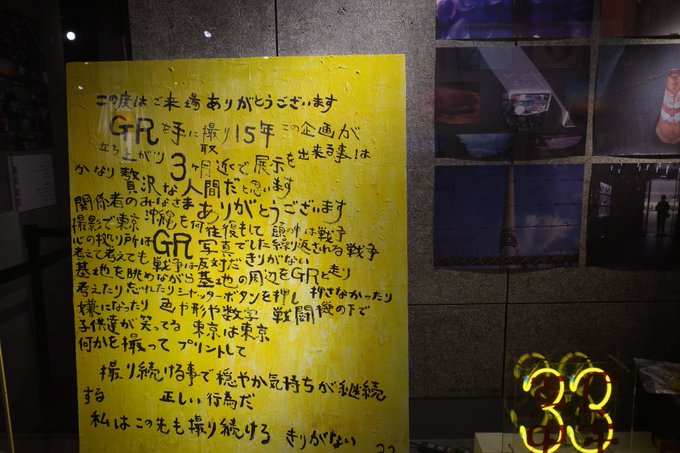 この度はご来場ありがとうございます
GRを手に撮り15年この企画が
取
立ち上がり3ヶ月近で展示を出来る事は
かなり贅沢な人間だと思います
関係者のみなさまありがとうございます
撮影で東京沖縄を何往復もして頭の中は戦争
心の拠り所はGR写真でした繰り返される戦争
考えて考えても戦争は反対だきりがない
基地を眺めながら基地の周辺をGRと走り
考えたり忘れたりシャッターボタンを押し押さなかったり
嫌になったり色や形や数字戦闘機の下で
子供達が笑ってる東京は東京
何かを撮ってプリントして
撮り続ける事で穏やか気持ちが継続
する正しい行為だ
私はこの先も撮り続けるきりがない
33
33